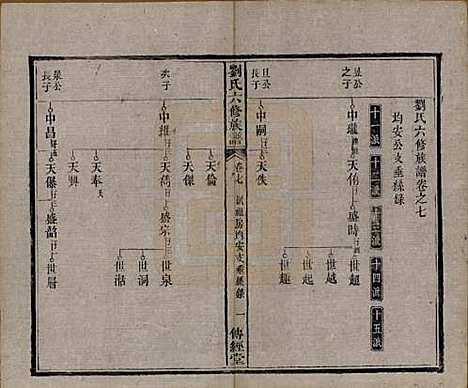 劉氏六修族譜卷之七
均安公支垂絲錄
十一派
十二派
十四派
十五派
昱公之子
中瓏
天佑
盛時
世超
世越
世起
世趨
且公長子
中嗣
天佚
劉氏六修族譜
卷七
房均安支垂絲錄
一
傳經堂
天倫
次子
中維
天儔
盛宗
世泉
世洞
世沾
長子
中昌
天奉
天傑
天興
盛韶
世層